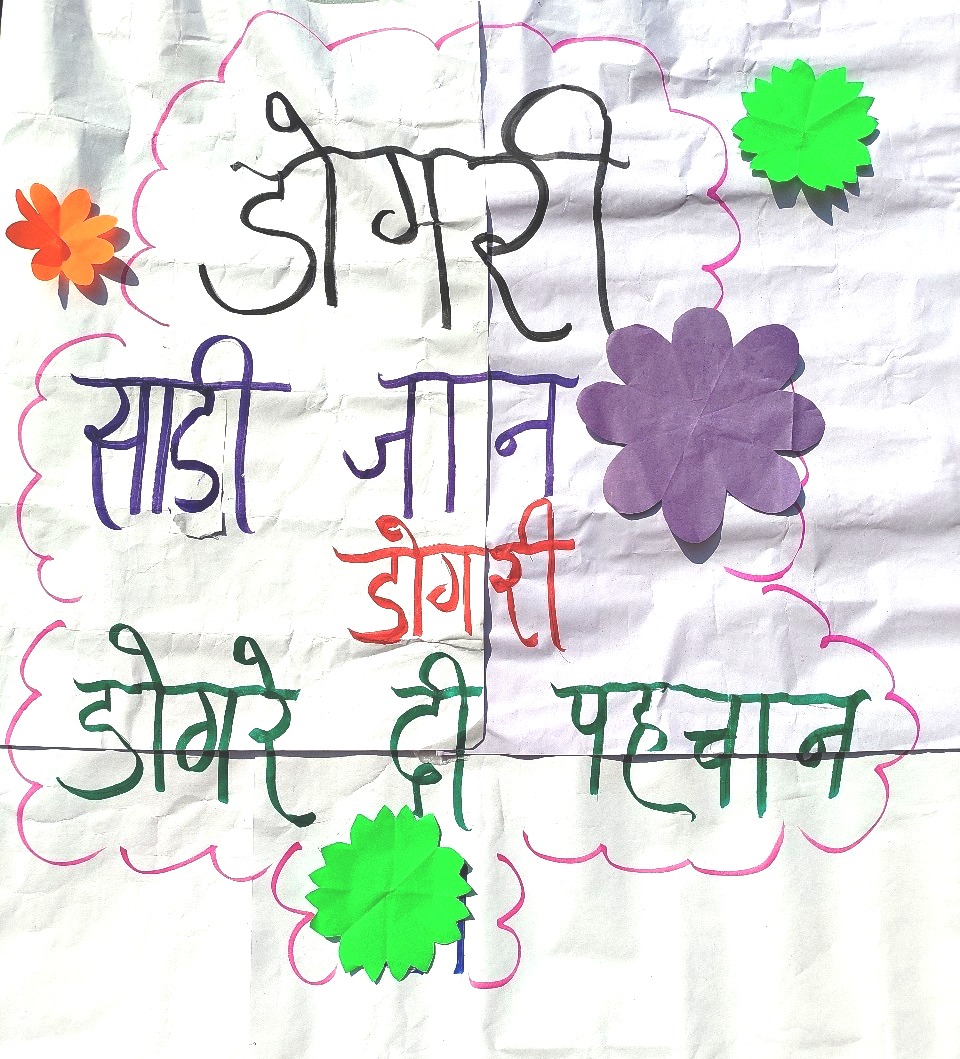 डोगरी
साडी जान
डोगरी
डोगरे दी पहचान